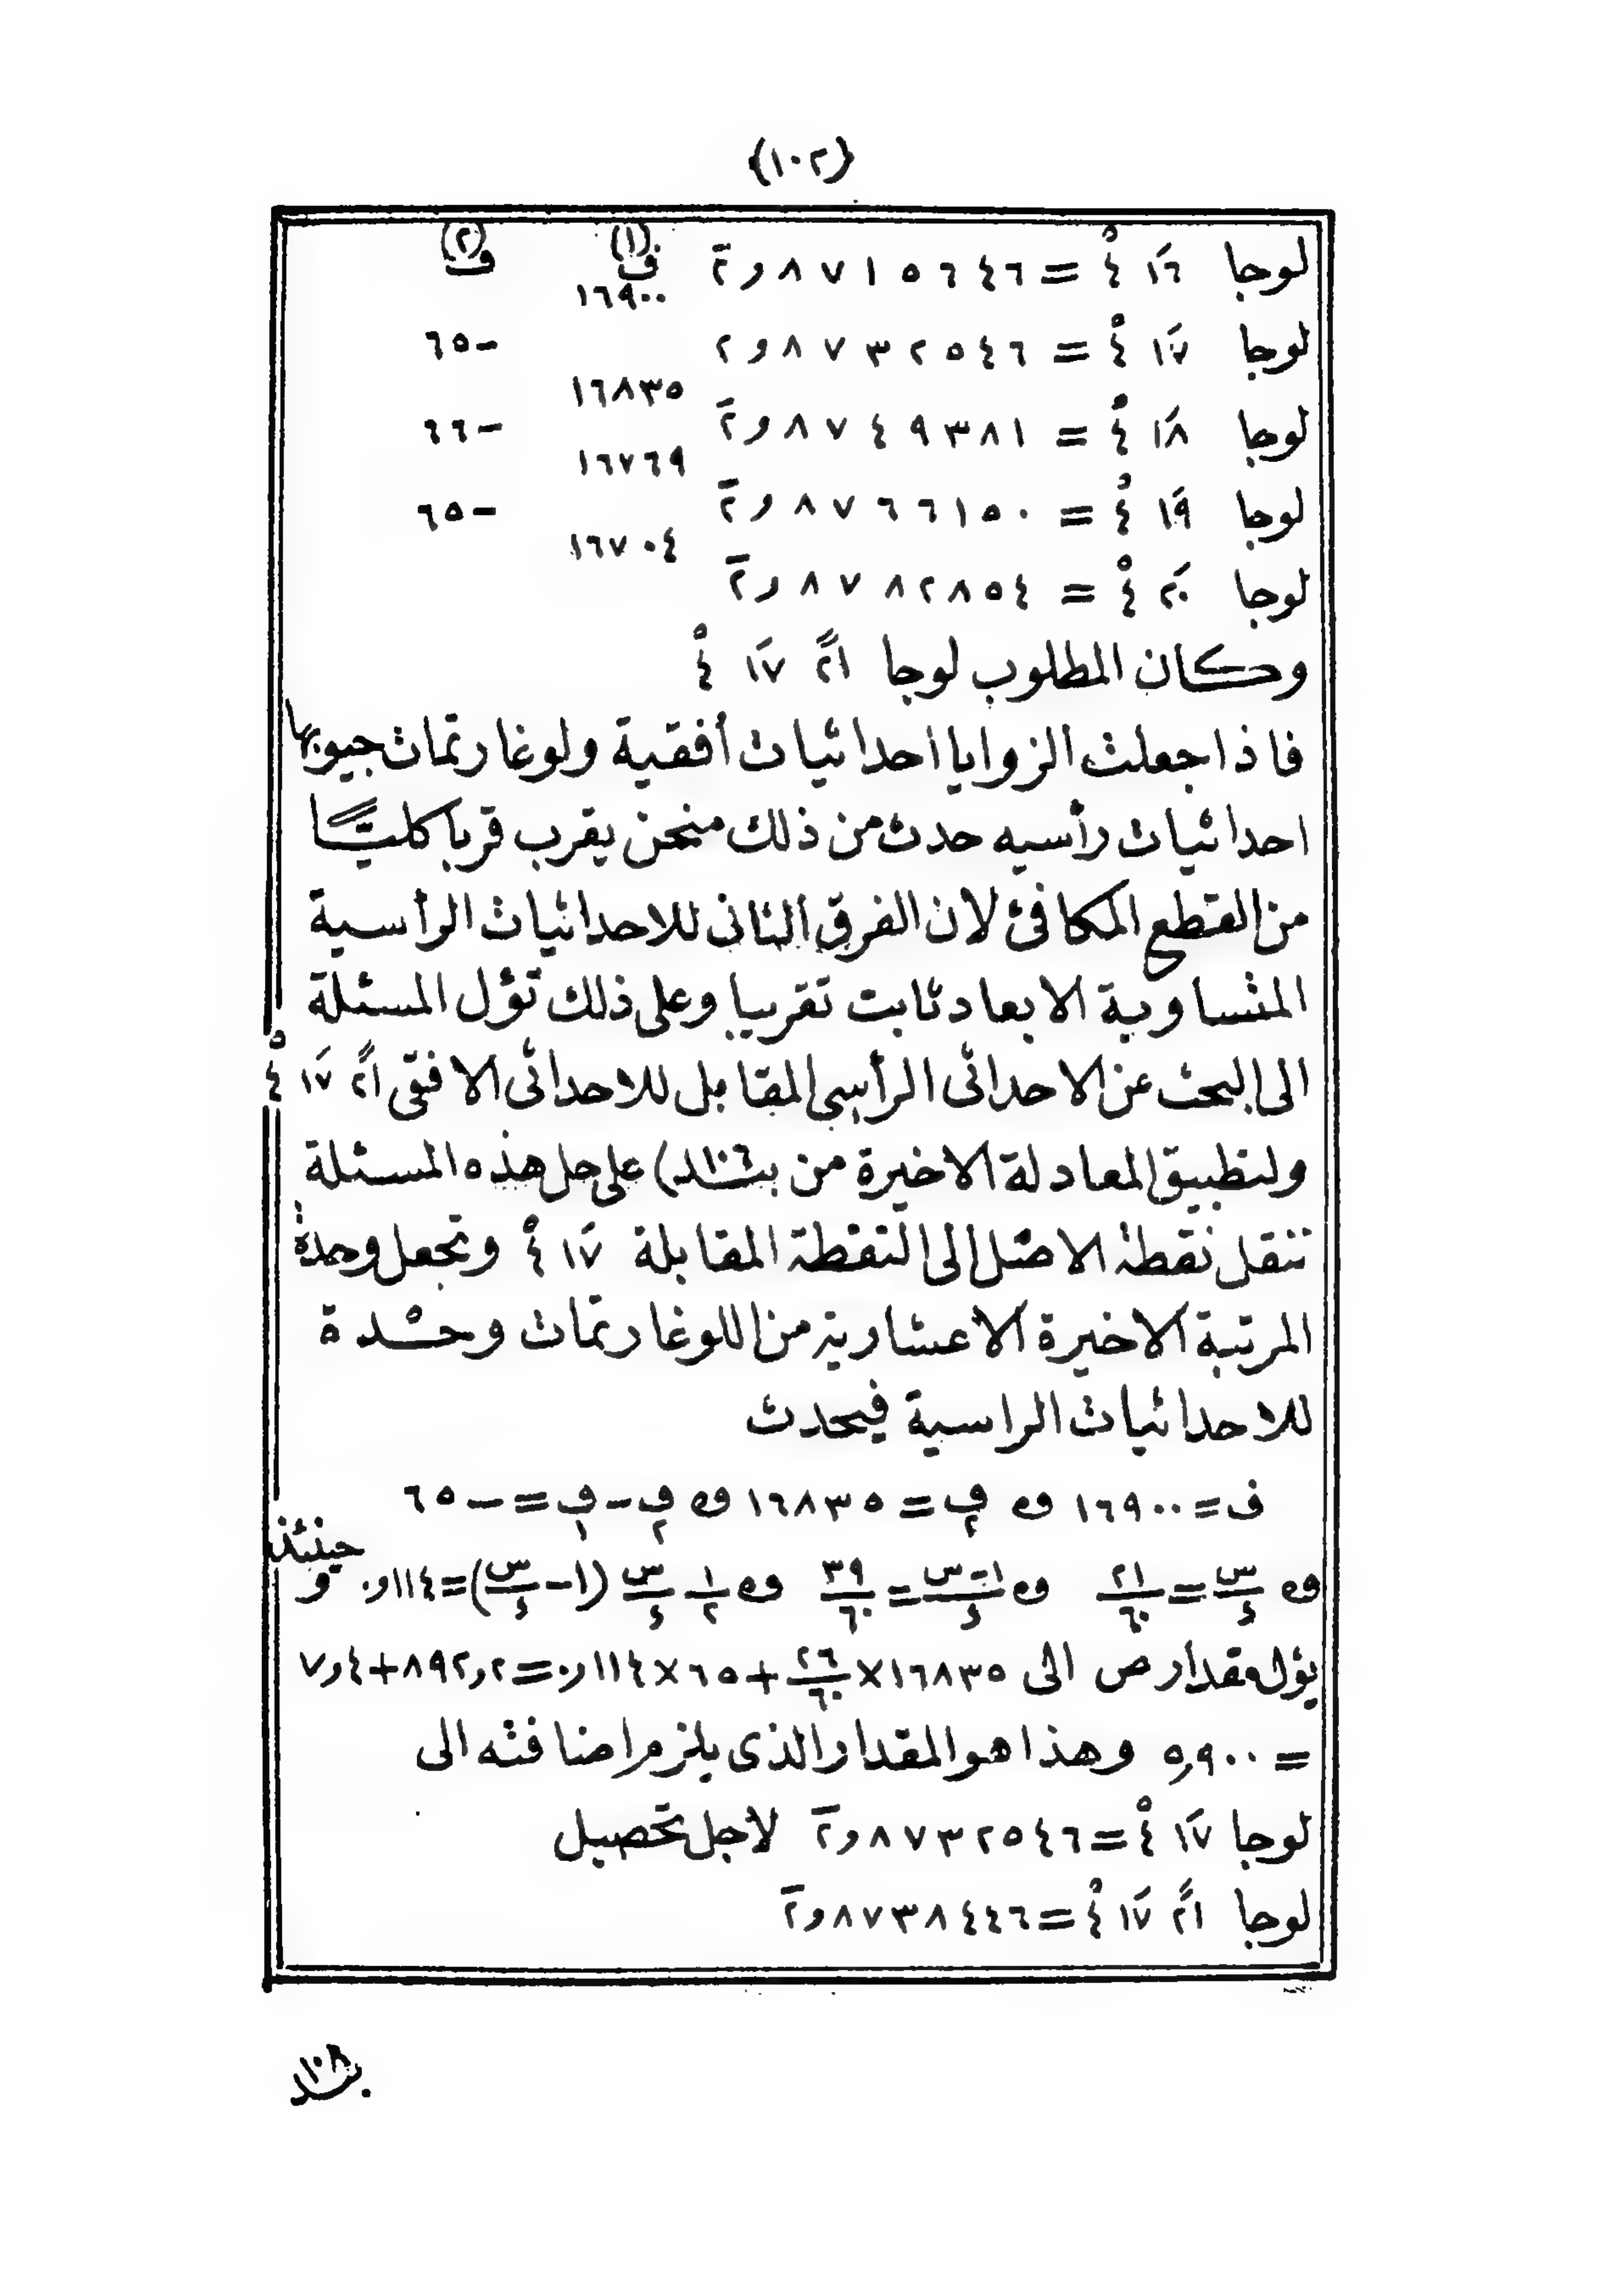 {١٠٢}
ف(١) ف(٢)
لوجا ١٦َ ٤ْ = ٢̄و٨٧١٥٦٤٦
١٦٩٠٠
لوجا ١٧َ ٤ْ = ٢و٨٧٣٢٥٤٦ −٦٥
١٦٨٣٥
لوجا ١٨َ ٤ْ = ٢̄و٨٧٤٩٣٨١ −٦٦
١٦٧٦٩
لوجا ١٩َ ٤ْ = ٢̄و٨٧٦٦١٥٠ −٦٥
١٦٧٠٤
لوجا ٢٠َ ٤ْ = ٢̄و٨٧٨٢٨٥٤
وكان المطلوب لوجا ٢١ً ١٧َ ٤ْ
فاذا جعلت الزوايا احداثيات أفقية ولوغارتمات جيوبها
احداثيات رأسيه حدث من ذلك منحن يقرب قربا كليّا
من القطع المكافئ لان الفرق الثانى للاحداثيات الرأسية
المتساوية الابعاد ثابت تقريبا وعلى ذلك تؤل المسئلة
الى البحث عن الاحداثى الرأسى المقابل للاحداثى الافقى ٢١ً ١٧َ ٤ْ
ولتطبيق المعادلة الاخيرة من بند ١٠٦) على حل هذه المسئلة
ننقل نقطة الاصل الى النقطة المقابلة ١٧َ ٤ْ ونجعل وحدة
المرتبة الاخيرة الاعشارية من اللوغارتمات وحدة
للاحداثيات الراسية فيحدث
ف = ١٦٩٠٠ و ف٢ = ١٦٨٣٥ و ف٢ − ف١ = −٦٥
و س/ء = ٢١/٦٠ و ١−س/ء = ٣٩/٦٠ و ١/٢ س/ء (١−س/ء) = ١١٤و٠ وحينئذ
يؤل مقدار ص الى ١٦٨٣٥×٢٦/٦٠+٦٥×١١٤و٠=٨٩٢و٢+٤و٧
= ٥٩٠٠ وهذا هو المقدار الذى يلزم اضافته الى
لوجا ١٧َ ٤ْ = ٢̄و٨٧٣٢٥٤٦ لاجل تحصيل
لوجا ٢١ً ١٧َ ٤ْ = ٢̄و٨٧٣٨٤٤٦
بند ١٠٨